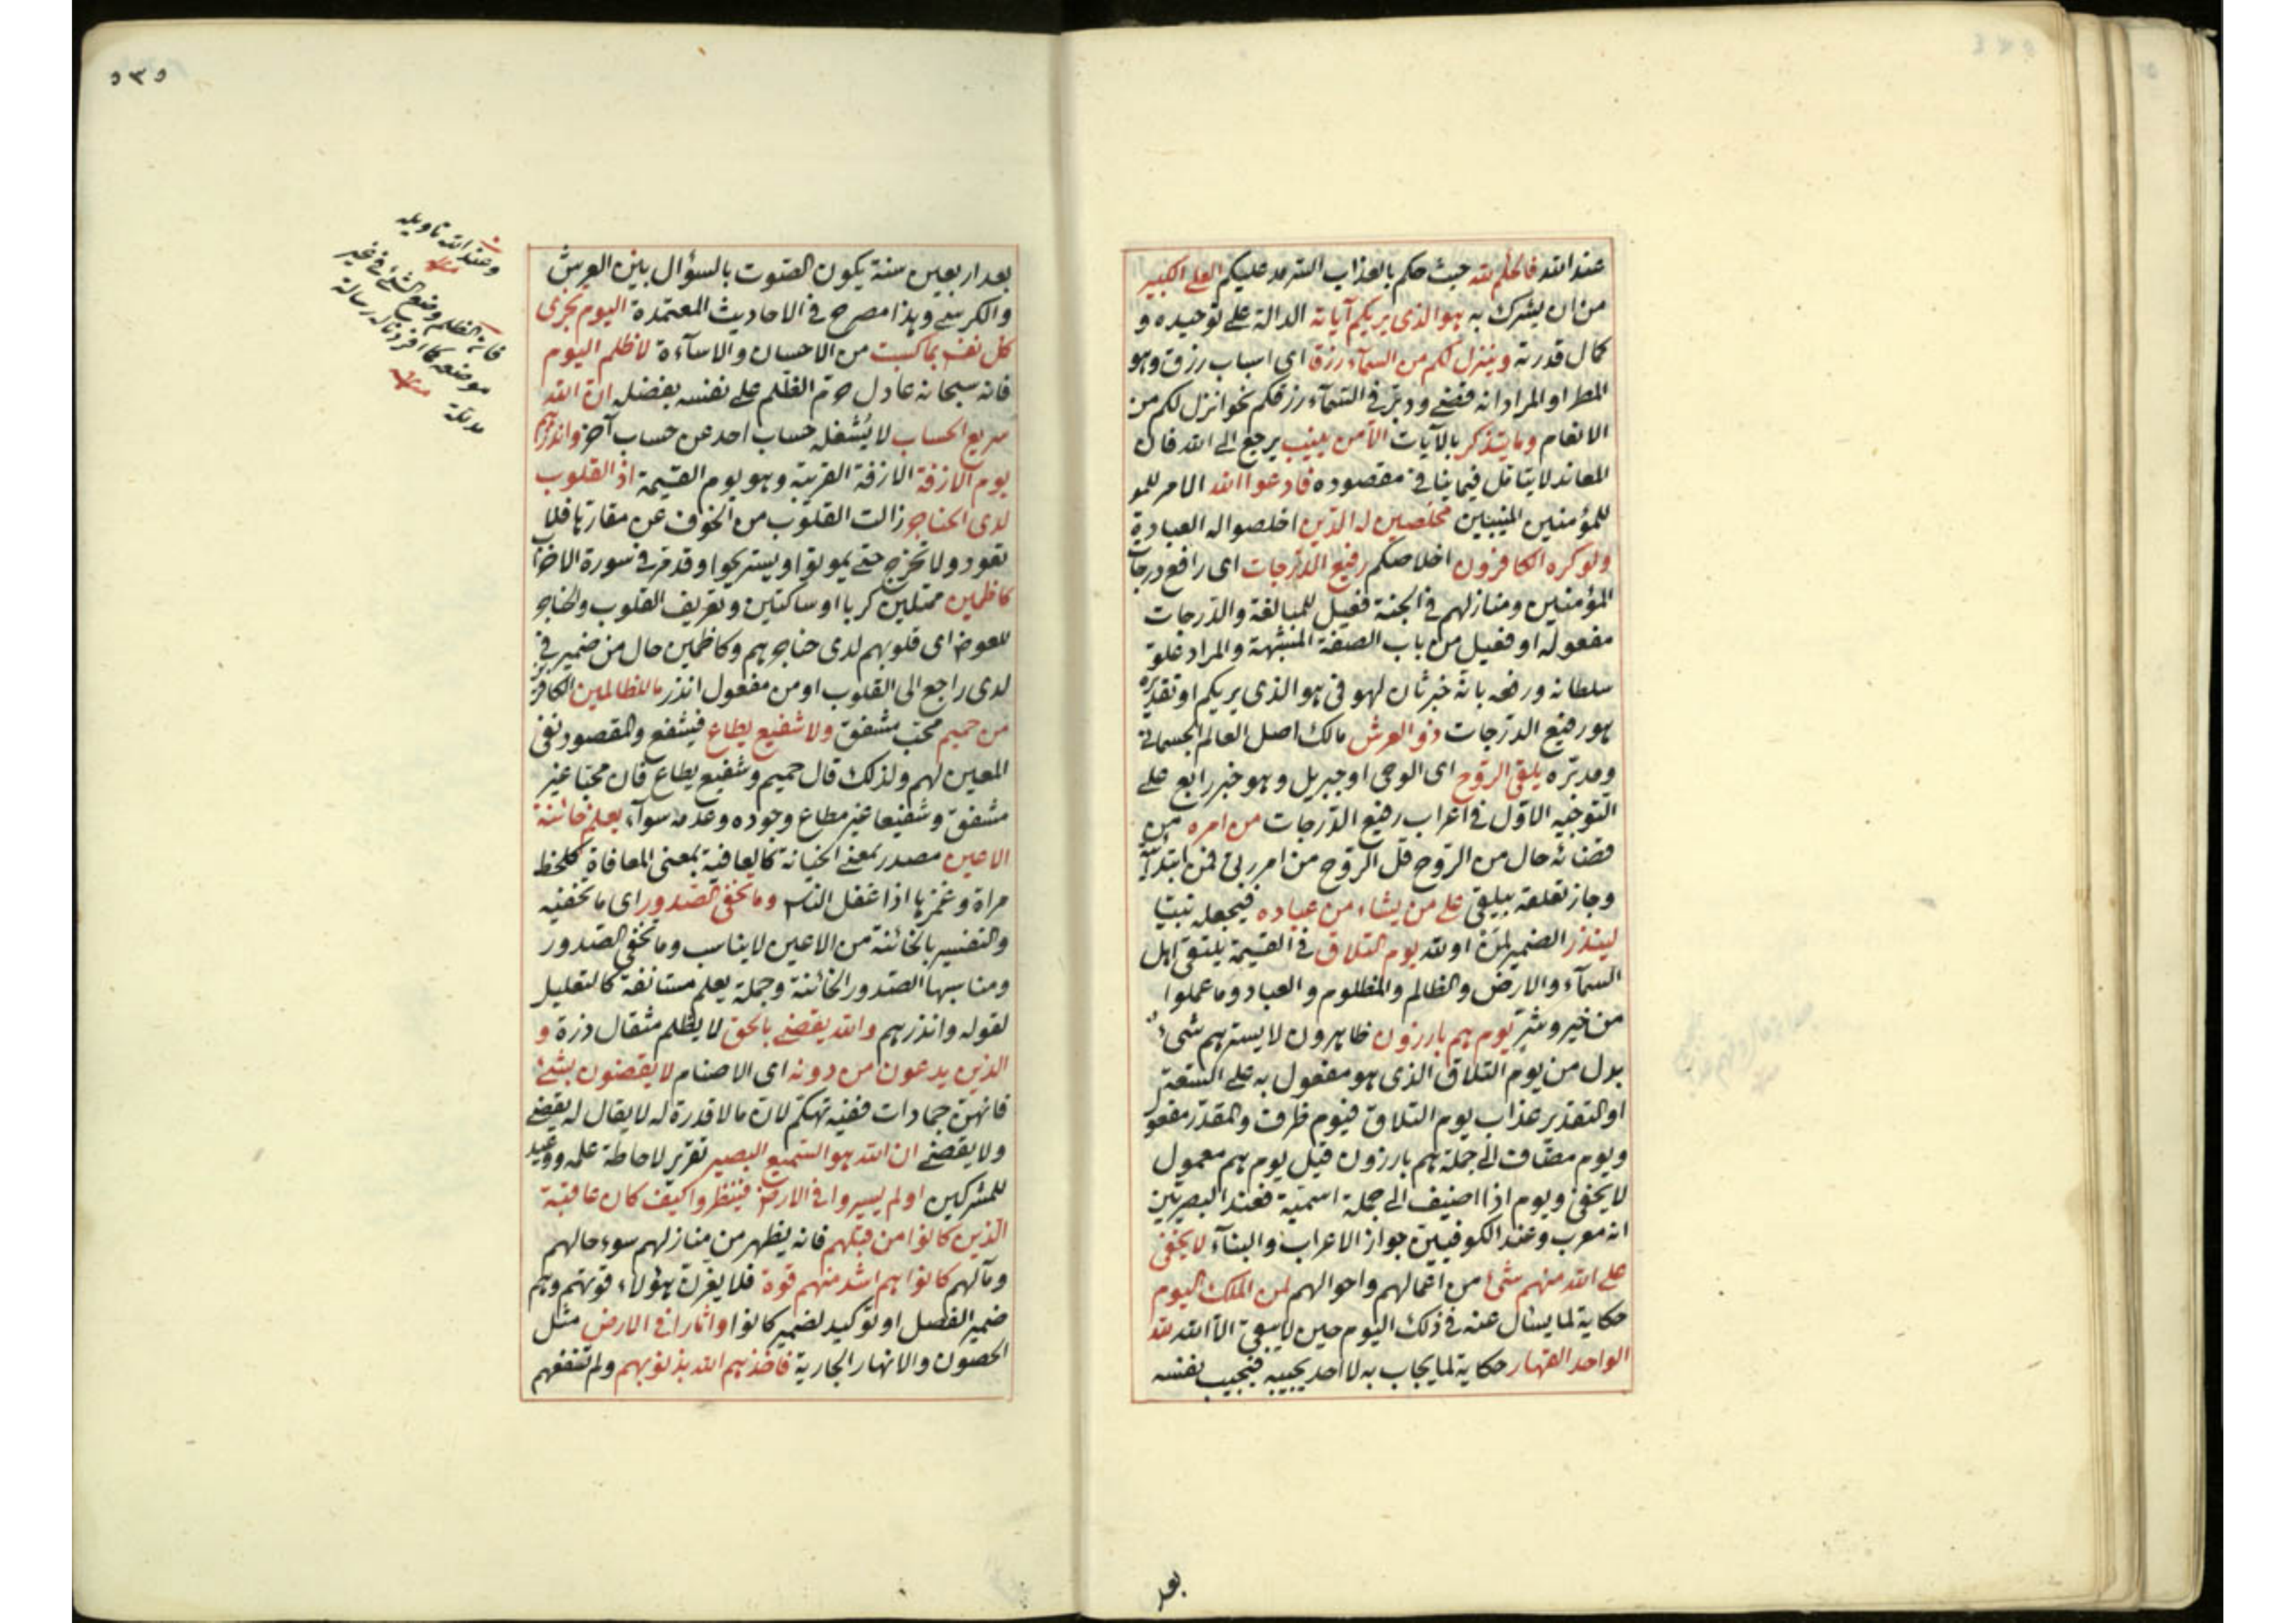 عند الله فالحكم لله حيث حكم بالعذاب السرمد عليكم العلي الكبير
من ان يشرك به هو الذى يريكم آياته الدالة على توحيده و
كمال قدرته وينزل لكم من السماء رزقا اى اسباب رزق وهو
المطر او المراد انه قضى ودبّر فى السماء رزقكم نحو انزل لكم من
الانعام وما يتذكر بالآيات الا من ينيب يرجع الى الله فان
المعاند لا يتامل فيما ينافى مقصوده فادعوا الله الامر للمو
للمؤمنين المنيبين مخلصين له الدين اخلصوا له العبادة
ولو كره الكافرون اخلاصكم رفيع الدرجات اى رافع درجات
المؤمنين ومنازلهم فى الجنة فعيل للمبالغة والدرجات
مفعوله او فعيل من باب الصفة المشبهة والمراد علوّ
سلطانه ورفعه بانه خبر ثان لهو فى هو الذى يريكم او تقديره
هو رفيع الدرجات ذو العرش مالك اصل العالم الجسمانى
ومدبّره يلقى الروح اى الوحى او جبريل وهو خبر رابع على
التوجيه الاول فى اعراب رفيع الدرجات من امره من
قضائه حال من الروح قل الروح من امر ربى فمن ابتدائية
وجاز تعلقه بيلقى على من يشاء من عباده فيجعله نبيّا
لينذر الضمير لمن او لله يوم التلاق فى القيمة يلتقى اهل
السماء والارض والظالم والمظلوم والعباد وما عملوا
من خير وشر يوم هم بارزون ظاهرون لا يسترهم شئ
بدل من يوم التلاق الذى هو مفعول به على السعة
او التقدير عذاب يوم التلاق فيوم ظرف والمقدر مفعو
ويوم مضاف الى جملة هم بارزون قيل يوم هم معمول
لا يخفى ويوم اذا اضيف الى جملة اسمية فعند البصريين
انه معرب وعند الكوفيين جواز الاعراب والبناء لا يخفى
على الله منهم شئ من اعمالهم واحوالهم لمن الملك اليوم
حكاية لما يسئال عنه فى ذلك اليوم حين لا يبقى الا الله لله
الواحد القهار حكاية لما يجاب به لا احد يجيبه فيجيب نفسه
بعد
٥٣٥
بعد اربعين سنة يكون الصوت بالسؤال بين العرش
والكرسى وهذا مصرح فى الاحاديث المعتمدة اليوم تجزى
كل نفس بما كسبت من الاحسان والاساءة لا ظلم اليوم
فانه سبحانه عادل حرّم الظلم على نفسه بفضله ان الله
سريع الحساب لا يشغله حساب احد عن حساب آخر وانذرهم
يوم الآزفة الازفة القريبة وهو يوم القيمة اذ القلوب
لدى الحناجر زالت القلوب من الخوف عن مقارها فلا
تعود ولا تخرج حتى يموتوا ويستريحوا وقد مرّ فى سورة الاحزا
كاظمين ممتلين كربا او ساكتين وتعريف القلوب والحناجر
للعوض اى قلوبهم لدى حناجرهم وكاظمين حال من ضمير فى
لدى راجع الى القلوب او من مفعول انذر ما للظالمين الكافرين
من حميم محبّ مشفق ولا شفيع يطاع فيشفع والمقصود نفى
المعين لهم ولذلك قال حميم وشفيع يطاع فان محبّا غير
مشفق وشفيعا غير مطاع وجوده وعدمه سواء يعلم خائنة
الاعين مصدر بمعنى الخيانة كالعافية بمعنى المعافاة كلحظ
مراة وغمزها اذا غفل الناس وما تخفى الصدور اى ما تخفيه
والتفسير بالخائنة من الاعين لا يناسب وما تخفى الصدور
ومناسبها الصدور الخائنة وجملة يعلم مستانفة كالتعليل
لقوله وانذرهم والله يقضى بالحق لا يظلم مثقال ذرة و
الذين يدعون من دونه اى الاصنام لا يقضون بشئ
فانهن جمادات ففيه تهكم لان ما لا قدرة له لا يقال له يقضى
ولا يقضى ان الله هو السميع البصير تقرير لاحاطة علمه ووعيد
للمشركين اولم يسيروا فى الارض فينظروا كيف كان عاقبة
الذين كانوا من قبلهم فانه يظهر من منازلهم سوء حالهم
ومآلهم كانوا هم اشد منهم قوة فلا يغرن هؤلاء قوتهم وهم
ضمير الفصل او توكيد لضمير كانوا واثارا فى الارض مثل
الحصون والانهار الجارية فاخذهم الله بذنوبهم ولم تنفعهم
وعند الله تاويله
منه
فانه الظلم وضع الشئ فى غير
موضعه كما افردنا له رسالة
منه